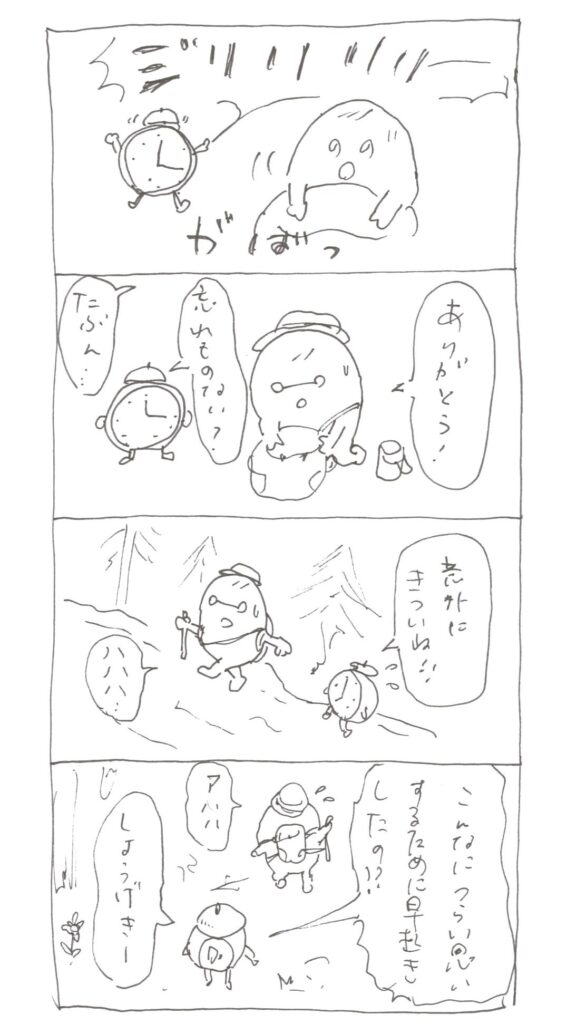 ジリリリリリー
がばっ
ありがとう!
忘れものない?
たぶん…
意外に
きついね!!
ハハハハ…
こんなにつらい思い
するために早起き
したの!?
アハハ
しょうげきー